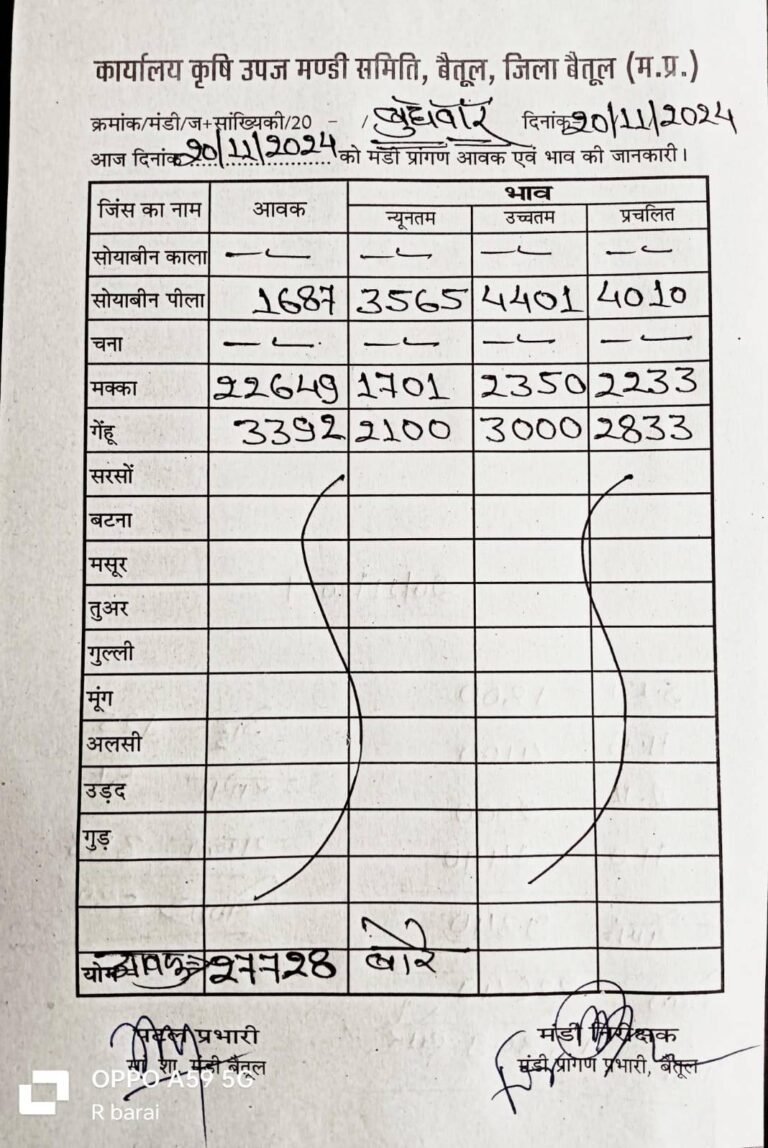 कार्यालय कृषि उपज मण्डी समिति, बैतूल, जिला बैतूल (म.प्र.)
क्रमांक/मंडी/ज+सांख्यिकी/20 - / बुधवार दिनांक 20/11/2024
आज दिनांक 20/11/2024 को मंडी प्रांगण आवक एवं भाव की जानकारी।
जिंस का नाम आवक भाव
न्यूनतम उच्चतम प्रचलित
सोयाबीन काला — — — — — — — —
सोयाबीन पीला 1687 3565 4401 4010
चना — — — — — — — —
मक्का 22649 1701 2350 2233
गेंहू 3392 2100 3000 2833
सरसों
बटना
मसूर
तुअर
गुल्ली
मूंग
अलसी
उड़द
गुड़
योग आवक 27728 बोरे
प्रभारी मंडी निरीक्षक
सा. शा. मंडी बैतूल मंडी प्रांगण प्रभारी, बैतूल
OPPO A59 5G
R barai